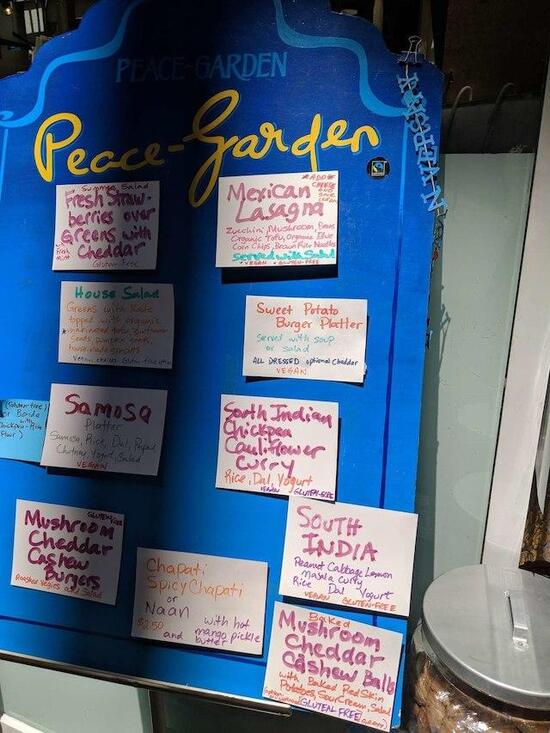 PEACE-GARDEN
Peace-Garden
Summer Salad
Fresh Straw-
berries over
Greens with
Cheddar
Fresh
Mint
Gluten-free
*ADD
CHEESE
Mexican
Lasagna
Zucchini, Mushroom, Beans
Organic Tofu, Organic Blue
Corn Chips, Brown Rice Noodles
served with Salad
*VEGAN *GLUTEN-FREE
House Salad
Greens with Kale
topped with organic
marinated tofu, Sunflower
Seeds, pumpkin seeds,
housemade sprouts
Sweet Potato
Burger Platter
served with soup
or salad
ALL DRESSED optional cheddar
VEGAN
(Gluten-free)
or Bonda
with
Chickpea-Rice
Flour)
SAMOSA
Platter
Samosa, Rice, Dal, Papad
Chutney, Yogurt, Salad
VEGAN
South Indian
Chickpea
Cauliflower
Curry
Rice, Dal, Yogurt
VEGAN GLUTEN-FREE
GLUTEN-FREE
Mushroom
Cheddar
Cashew
Burgers
Roasted Vegies and Salad
Chapati
Spicy Chapati
or
Naan
$2.50 with hot
mango pickle
and butter
SOUTH
INDIA
Peanut Cabbage Lemon
Masala Curry
Rice Dal Yogurt
VEGAN GLUTEN-FREE
Baked
Mushroom
Cheddar
Cashew Balls
with Baked Red Skin
Potatoes, Sour Cream, Salad
(GLUTEN FREE)